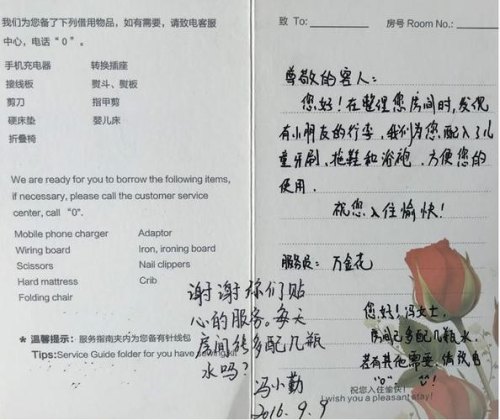 我们为您备了下列借用物品，如有需要，请致电客服
中心，电话“0”。
手机充电器 转换插座
接线板 熨斗、熨板
剪刀 指甲剪
硬床垫 婴儿床
折叠椅
We are ready for you to borrow the following items,
if necessary, please call the customer service
center, call “0”.
Mobile phone charger Adaptor
Wiring board Iron, ironing board
Scissors Nail clippers
Hard mattress Crib
Folding chair
* 温馨提示：服务指南夹内为您备有针线包
Tips:Service Guide folder for you have sewing kit
致 To: 房号 Room No.:
尊敬的客人：
您好！在整理您房间时，发现
有小朋友的行李，我们为您配入了儿
童牙刷、拖鞋和浴袍，方便您的
使用．
祝您入住愉快！
服务员：万金花
谢谢你们贴
心的服务。每天
房间能多配几瓶
水吗？
冯小勤
2016.9.9
您好！冯女士，
房间已多配几瓶水，
若有其他需要，请拨
“0”
祝您入住愉快！
I wish you a pleasant stay!